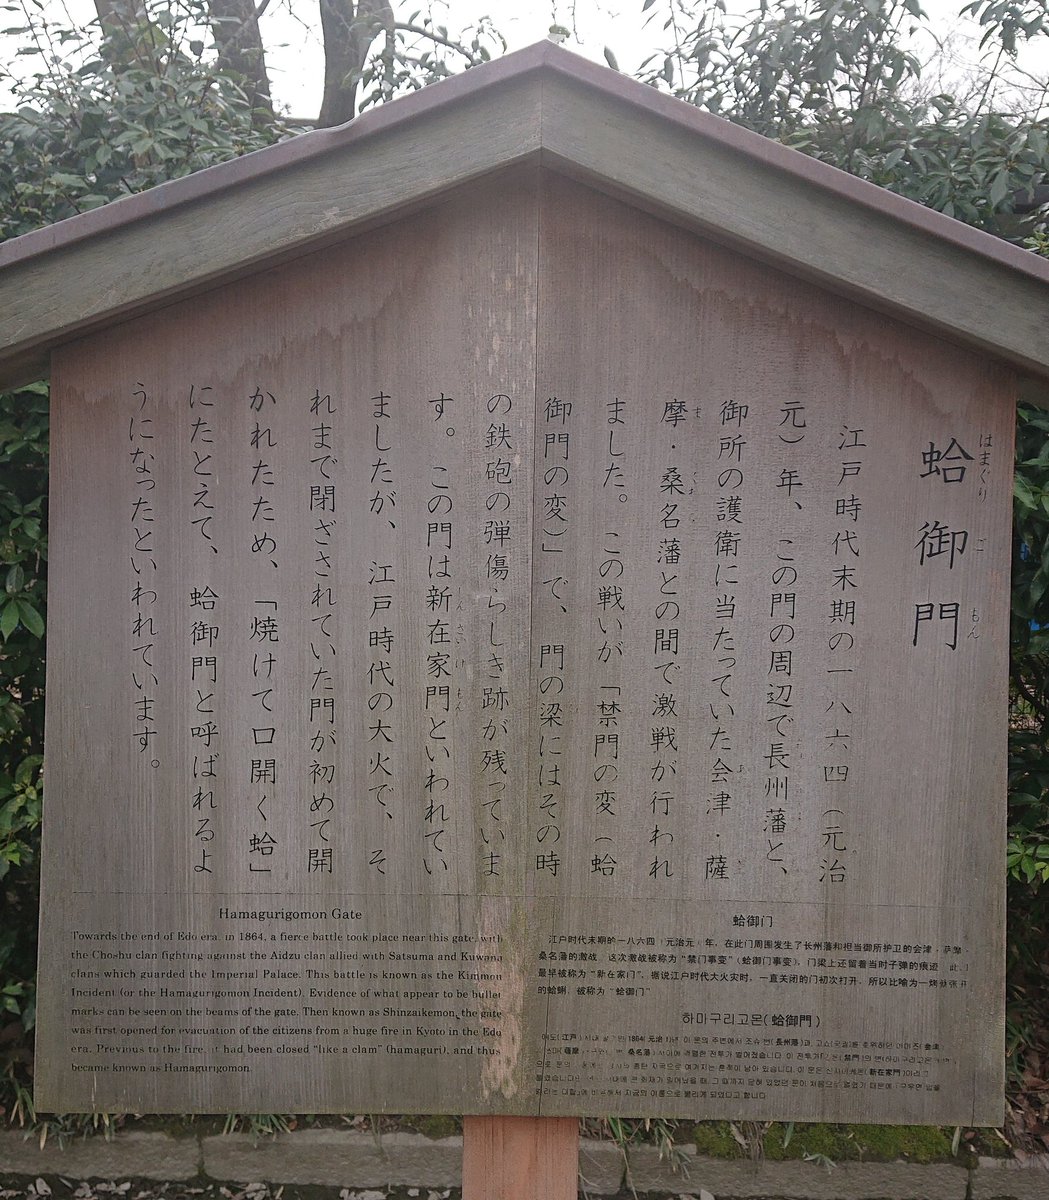 蛤御門
はまぐりごもん
江戸時代末期の一八六四(元治
元)年、この門の周辺で長州藩と、
御所の護衛に当たっていた会津・薩
摩・桑名藩との間で激戦が行われ
ました。この戦いが「禁門の変(蛤
御門の変)」で、門の梁にはその時
の鉄砲の弾傷らしき跡が残っていま
す。この門は新在家門といわれてい
ましたが、江戸時代の大火で、そ
れまで閉ざされていた門が初めて開
かれたため、「焼けて口開く蛤」
にたとえて、蛤御門と呼ばれるよ
うになったといわれています。
Hamagurigomon Gate
Towards the end of Edo era, in 1864, a fierce battle took place near this gate, with
the Choshu clan fighting against the Aidzu clan allied with Satsuma and Kuwana
clans which guarded the Imperial Palace. This battle is known as the Kimmon
Incident (or the Hamagurigomon Incident). Evidence of what appear to be bullet
marks can be seen on the beams of the gate. Then known as Shinzaikemon, the gate
was first opened for evacuation of the citizens from a huge fire in Kyoto in the Edo
era. Previous to the fire, it had been closed "like a clam" (hamaguri), and thus
became known as Hamagurigomon.
蛤御门
江户时代末期的一八六四(元治元)年,在此门周围发生了长州藩和担当御所护卫的会津,萨摩,
桑名藩的激战。这次激战被称为"禁门事变"(蛤御门事变),门梁上还留着当时子弹的痕迹。此门
最早被称为"新在家门",据说江户时代大火灾时,一直关闭的门初次打开,所以比喻为一烤就张开
的蛤蜊,被称为"蛤御门"
하마구리고몬(蛤御門)